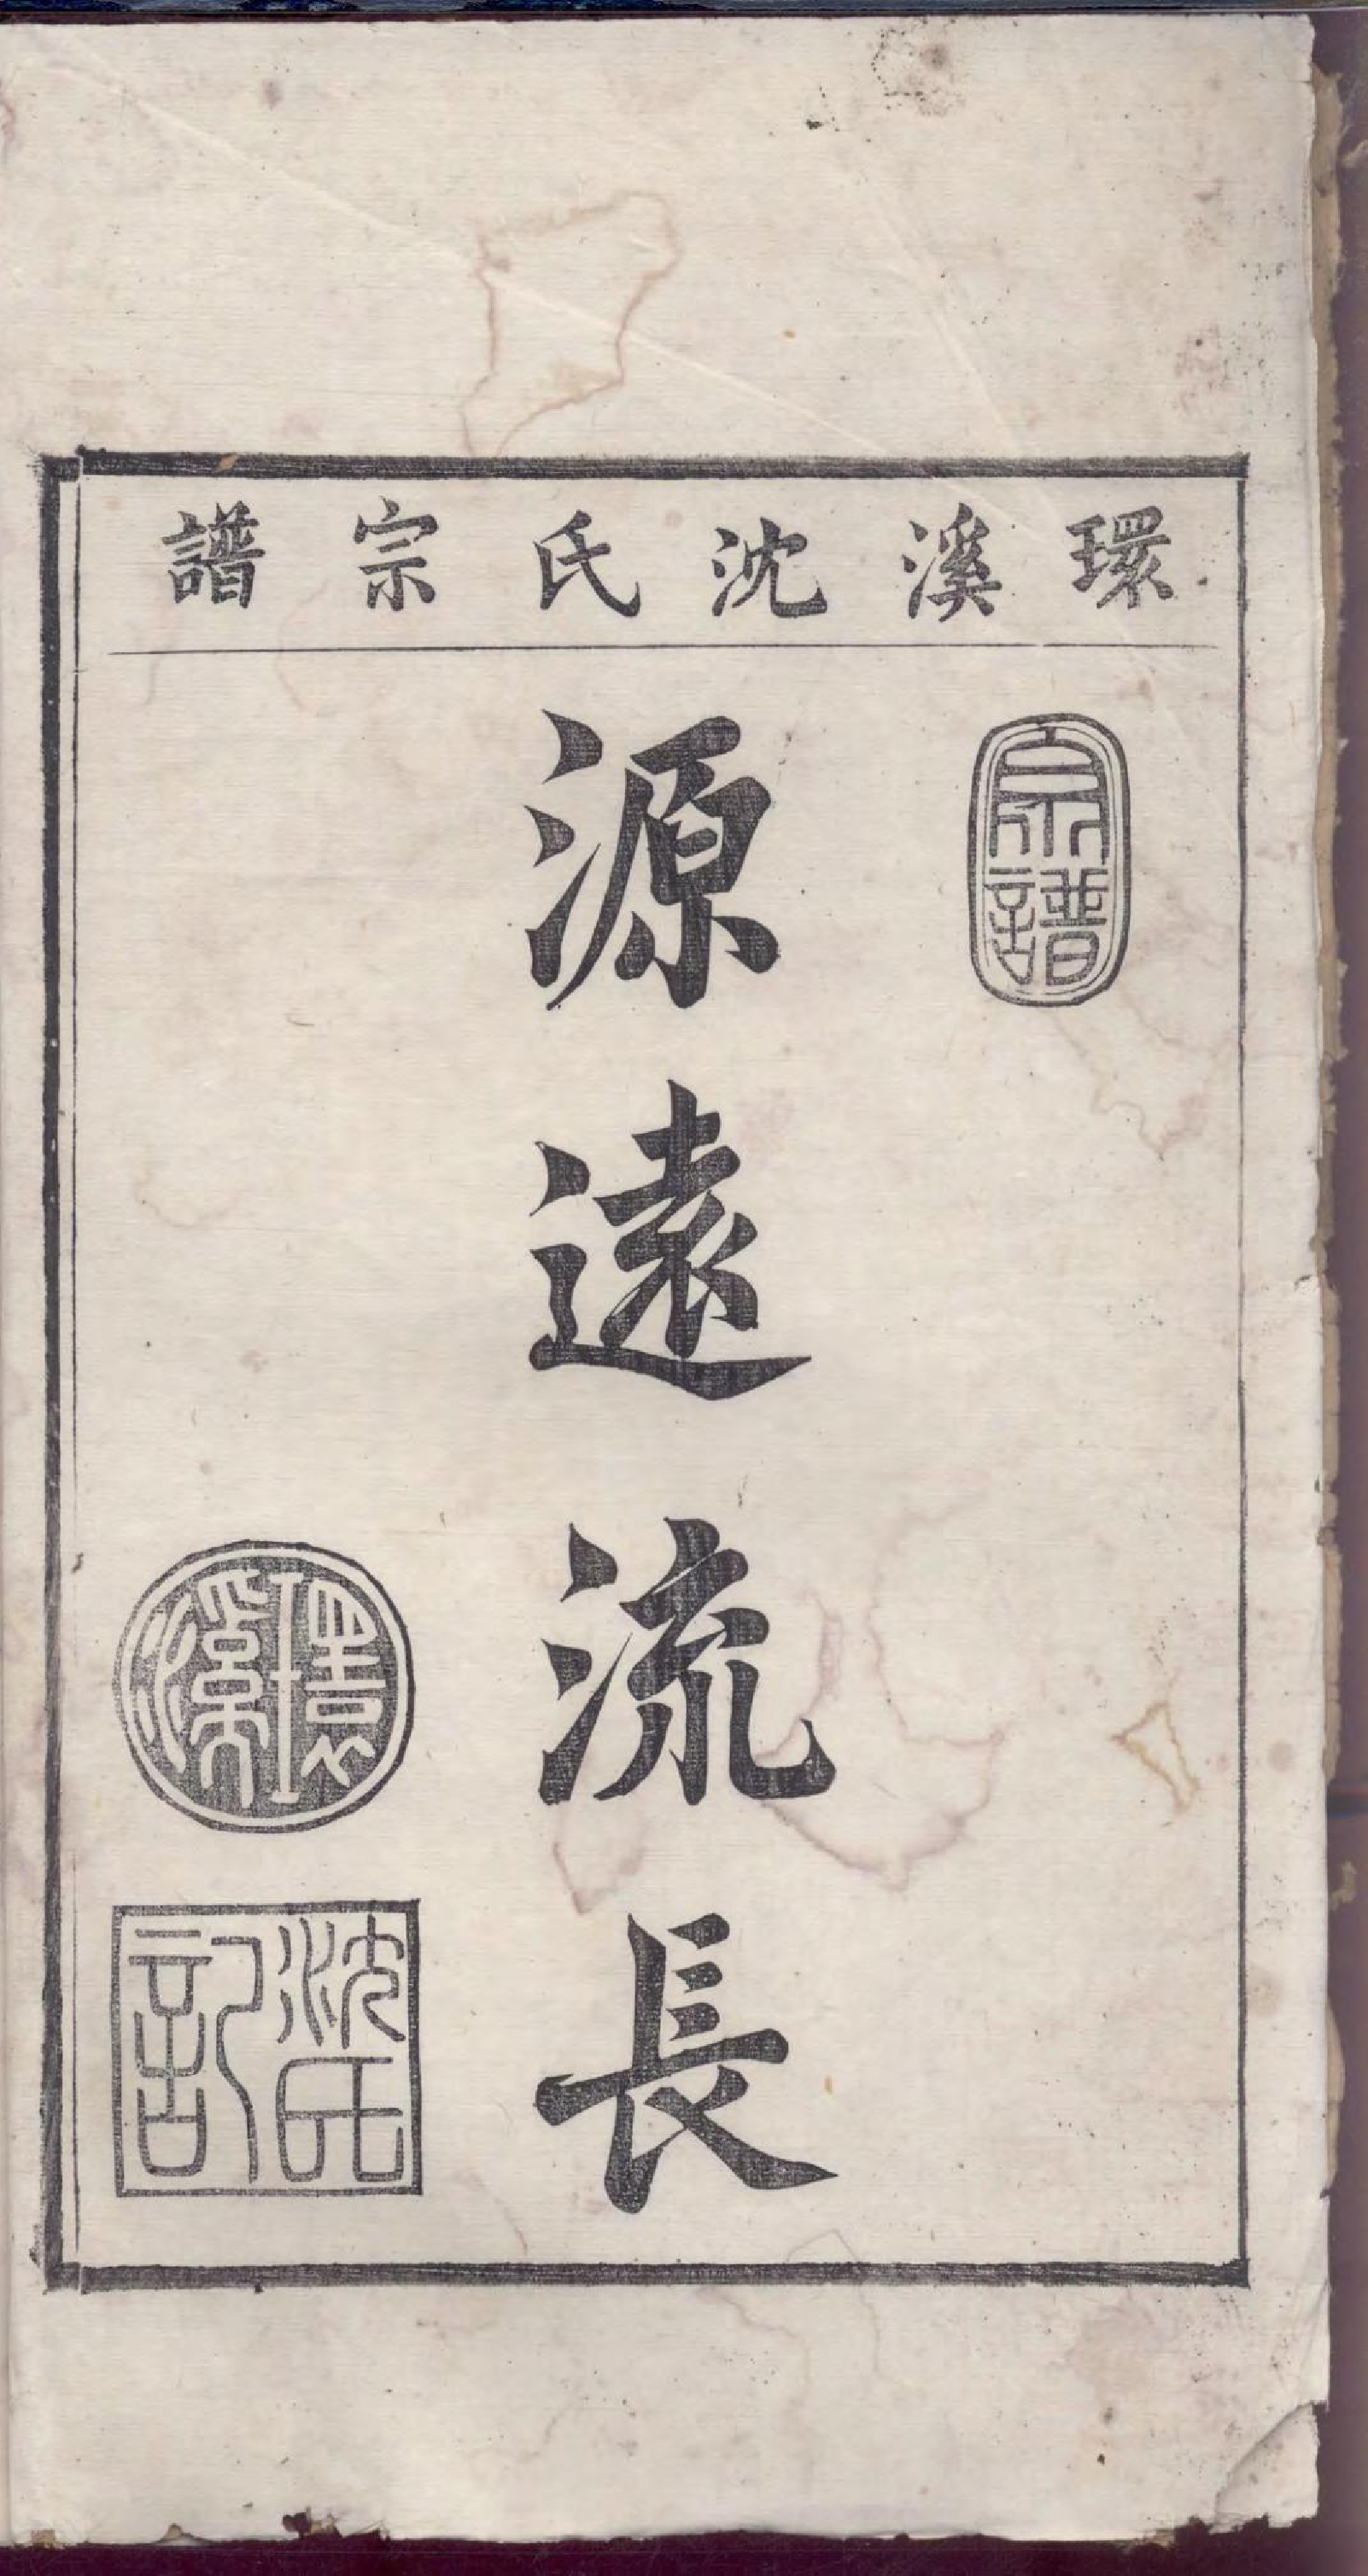 環溪沈氏宗譜
宗譜
源遠流長
環溪
沈氏
記